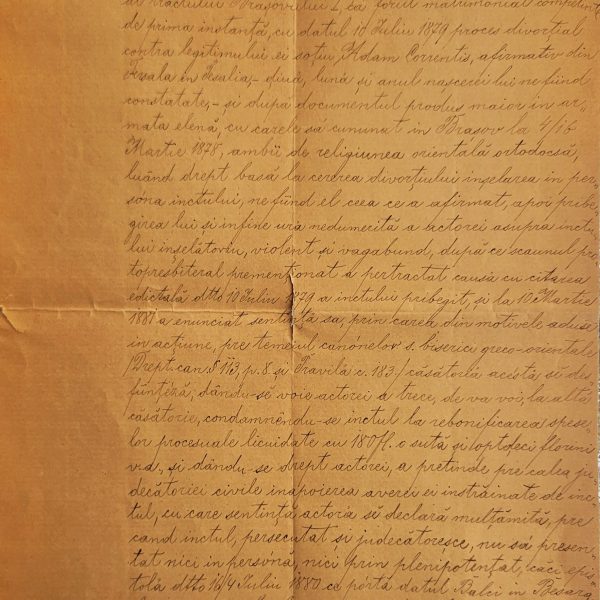 al tractului Brașovului I, ca forul matrimonial competinte
de prima instanță, cu datul 10 Iuliu 1879 proces divorțial
contra legitimului ei soțiu Adam Correntis, afirmativ din
Fersala in Tesalia, – diua, luna și anul nascerei lui ne fiind
constatate, – și dupa documentul produs maior in ar-
mata elenă, cu carele să cununat in Brașov la 4/16
Martie 1878, ambii de religiunea orientală ortodocsă,
luând drept basa la cererea divorțiului inșelarea in per-
sona inctului, ne fiind el ceea ce a afirmat, apoi pribe-
girea lui și infine ura nedumerită a actorei asupra inctu-
lui inșelătoriu, violent și vagabund, după ce scaunul pro-
topresbiteral premenționat a pertractat causa cu citarea
edictală dtto 10 Iuliu 1879 a inctului pribegit, și la 10 Martie
1881 a enunciat sentință sa, prin carea din motivele aduse
in acțiune, pre temeiul canónelor s. biserici greco-orientale
/Drept. can. § 113, p. 8 și Pravilă c. 183./ căsătoria acésta să des-
ființéză, dându-să voie actorei a trece, de va voi, la altă
căsătorie, condamnêndu-se inctul la rebonificarea spese-
lor procesuale licuidate cu 180 fl. o sută și optdeci florini
v.a., și dându-se drept actorei, a pretinde pre calea ju-
decătoriei civile inapoierea averei ei instrăinate de inc-
tul, cu care sentință actora să declară mulțămită, pre
cand inctul, persecutat și judecătoresce, nu sa presen-
tat nici in persónă, nici prin plenipotențat, căci epis-
tolă dtto 16/4 Iuliu 1880 ce pórtă datul Balci in Besara-